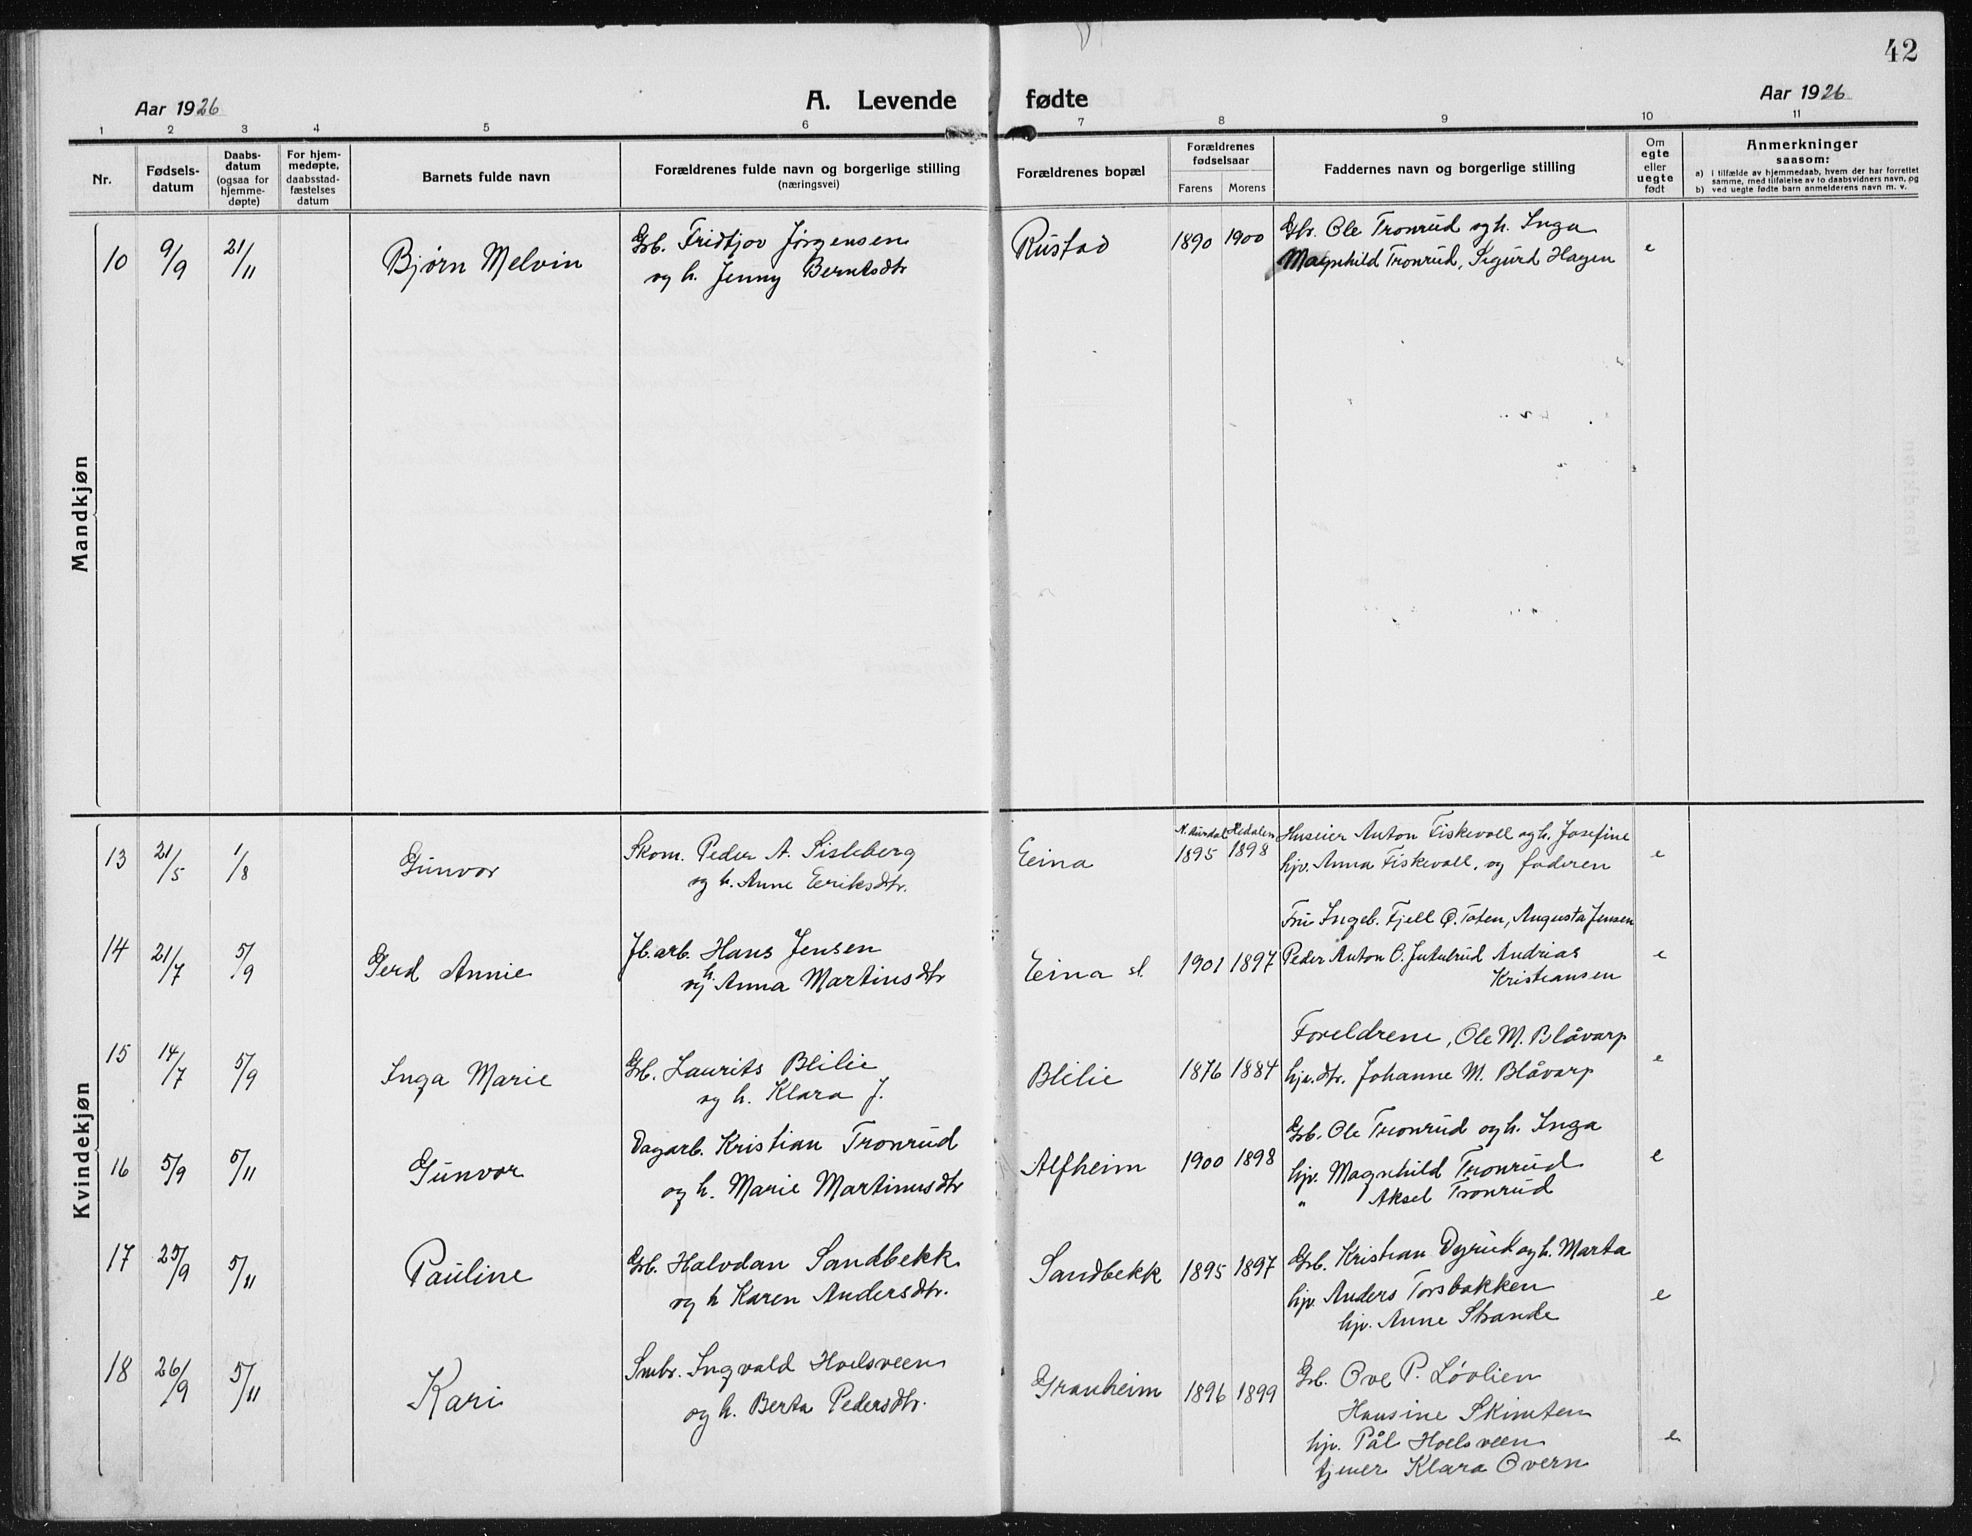 42
Aar 1926
A. Levende fødte
Aar 1926
1 2 3 4 5 6 7 8 9 10 11
Nr.
Fødsels-
datum
Daabs-
datum
(ogsaa for
hjemme-
døpte)
For hjem-
medøpte,
daabsstad-
fæstelses
datum
Barnets fulde navn
Forældrenes fulde navn og borgerlige stilling
(næringsvei)
Forældrenes bopæl
Forældrenes
fødselsaar
Farens Morens
Faddernes navn og borgerlige stilling
Om
egte
eller
uegte
født
Anmerkninger
saasom:
a) i tilfælde av hjemmedaab, hvem der har forrettet
samme, med tilføielse av to daabsvidners navn, og
b) ved uegte fødte barn anmelderens navn m. v.
Mandkjøn
10 9/9 21/11 Bjørn Melvin
Gb. Fridtjov Jørgensen
og h. Jenny Berntsdtr
Rustad 1890 1900
Gb. Ole Tronrud og h. Inga
Magnhild Tronrud, Sigurd Hagen
e
Kvindekjøn
13 21/5 1/8 Gunvor
Skom. Peder A. Sisleberg
og h. Anne Eeriksdtr.
Eina
N. Aurdal Hedalen
1895 1898
Huseier Anton Fiskevoll og h. Josefine
hjv. Anna Fiskevoll, og faderen
e
14 21/7 5/9 Gerd Annie
Jb. arb. Hans Jensen
og h. Anna Martinsdtr
Eina st. 1901 1897
Fru Ingeb. Fjell Ø. Toten, Augusta Jensen
Peder Anton O. Jutulrud Andrias
Kristiansen
e
15 14/7 5/9 Inga Marie
Gb. Laurits Blilie
og h. Klara J.
Blilie 1876 1884
Foreldrene, Ole M. Blåvarp
hjv. dtr. Johanne M. Blåvarp
e
16 5/9 5/11 Gunvor
Dagarb. Kristian Tronrud
og h. Marie Martinusdtr
Alfheim 1900 1898
Gb. Ole Tronrud og h. Inga
hjv. Magnhild Tronrud
" Aksel Tronrud
e
17 25/9 5/11 Pauline
Gb. Halvdan Sandbekk
og h Karen Andersdtr.
Sandbekk 1895 1897
Gb. Kristian Dyrud og h. Marta
hjv. Anders Torsbakken
hjv. Anne Strande
e
18 26/9 5/11 Kari
Smbr. Ingvald Hoelsveen
og h. Berta Pedersdtr.
Granheim 1896 1899
Gb. Ove P. Løvlien
Hansine Skimten
hjv. Pål Hoelsveen
tjener Klara Overn
e